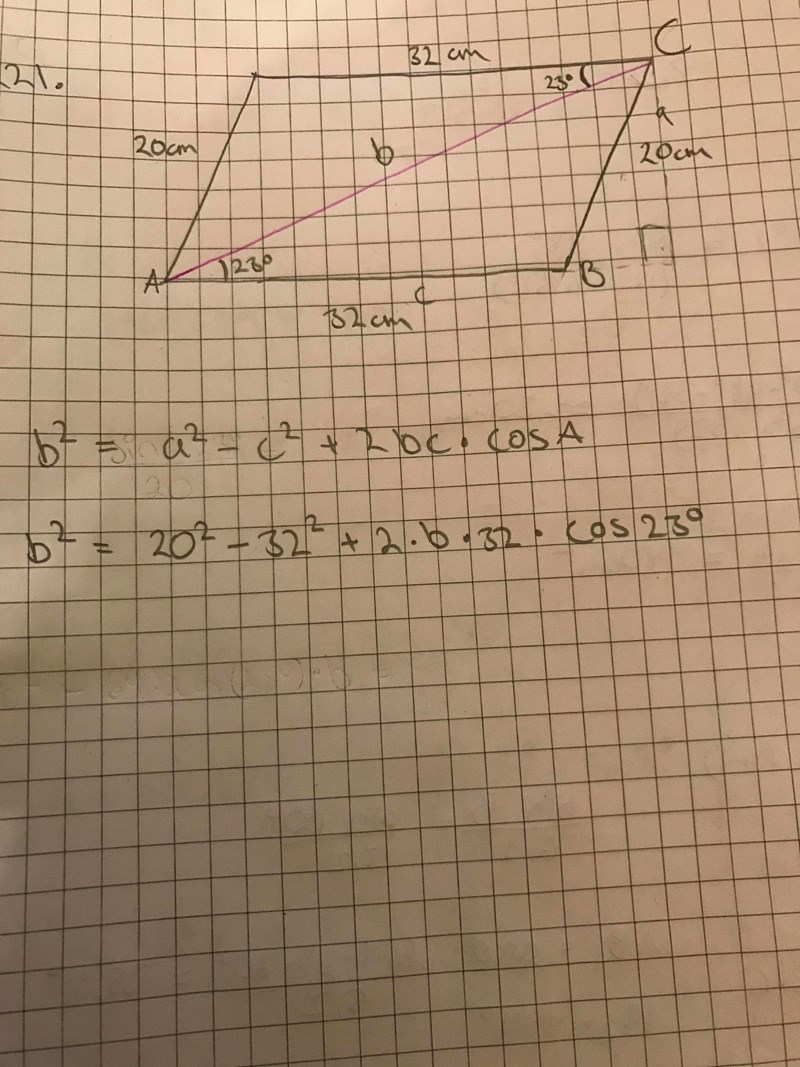 21.
32 cm
C
23°
a
20cm
b
20cm
A
23°
B
c
32cm
b² = a² - c² + 2bc · cosA
b² = 20² - 32² + 2 · b · 32 · cos 23°